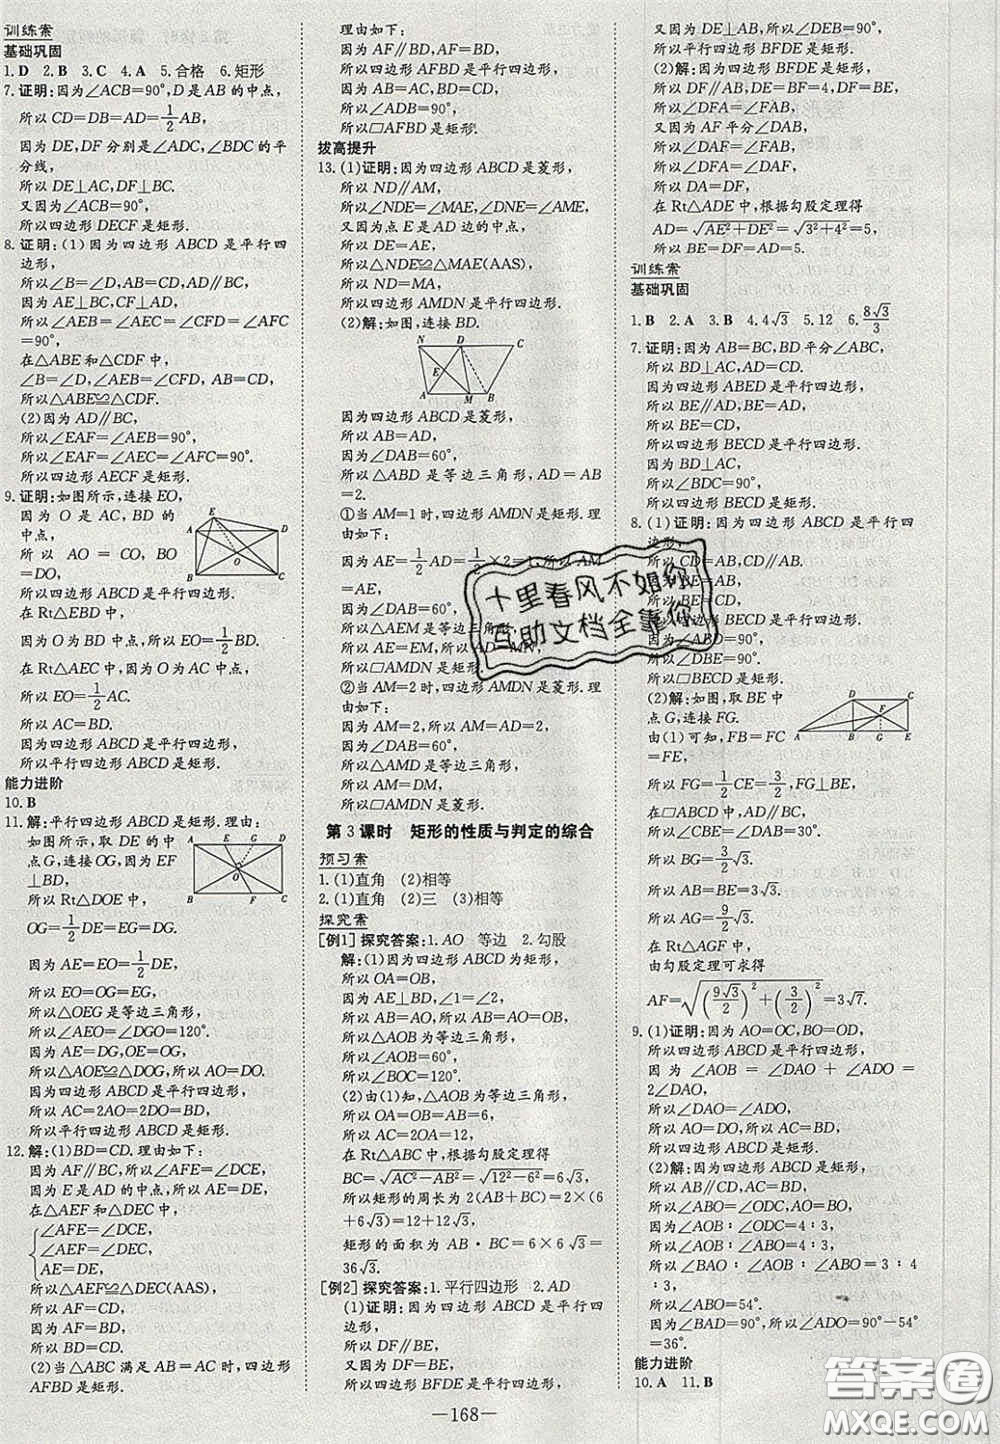 训练案
基础巩固
1. D 2. B 3. C 4. A 5. 合格 6. 矩形
7. 证明:因为∠ACB=90°,D是AB的中点,
所以 CD=DB=AD=1/2AB,
因为 DE,DF 分别是∠ADC,∠BDC 的平
分线,
所以 DE⊥AC,DF⊥BC.
又因为∠ACB=90°,
所以四边形 DECF 是矩形.
8. 证明:(1)因为四边形 ABCD 是平行四
边形,
所以∠B=∠D,AB=CD,AD∥BC.
因为 AE⊥BC,CF⊥AD,
所以∠AEB=∠AEC=∠CFD=∠AFC
=90°,
在△ABE和△CDF中,
∠B=∠D,∠AEB=∠CFD,AB=CD,
所以△ABE≌△CDF.
(2)因为 AD∥BC,
所以∠EAF=∠AEB=90°,
所以∠EAF=∠AEC=∠AFC=90°.
所以四边形 AECF 是矩形.
9. 证明:如图所示,连接EO,
因为 O 是 AC,BD 的
中点,
所以 AO=CO,BO
=DO,
在 Rt△EBD 中,
因为 O为BD中点,所以EO=1/2BD.
在 Rt△AEC 中,因为O为AC中点,
所以 EO=1/2AC.
所以 AC=BD.
又因为四边形 ABCD 是平行四边形,
所以平行四边形 ABCD 是矩形.
能力进阶
10. B
11. 解:平行四边形 ABCD 是矩形.理由:
如图所示,取 DE 的中
点G,连接OG,因为 EF
⊥BD,
所以Rt△DOE 中,
OG=1/2DE=EG=DG,
因为 AE=EO=1/2DE,
所以 EO=OG=EG,
所以△OEG 是等边三角形,
所以∠AEO=∠DGO=120°.
因为 AE=DG,OE=OG,
所以△AOE≌△DOG,所以 AO=DO.
因为四边形 ABCD 是平行四边形,
所以 AC=2AO=2DO=BD,
所以平行四边形 ABCD 是矩形.
12. 解:(1)BD=CD.理由如下:
因为 AF∥BC,所以∠AFE=∠DCE,
因为 E 是 AD 的中点,所以 AE=DE,
在△AEF 和△DEC 中,
∠AFE=∠DCE,
∠AEF=∠DEC,
AE=DE,
所以△AEF≌△DEC(AAS),
所以 AF=CD,
因为 AF=BD,
所以 BD=CD.
(2)当△ABC 满足 AB=AC 时,四边形
AFBD 是矩形.
理由如下:
因为 AF∥BD,AF=BD,
所以四边形 AFBD 是平行四边形,
因为 AB=AC,BD=CD,
所以∠ADB=90°,
所以□AFBD 是矩形.
拔高提升
13. (1)证明:因为四边形 ABCD 是菱形,
所以 ND∥AM,
所以∠NDE=∠MAE,∠DNE=∠AME,
又因为点 E 是 AD 边的中点,
所以 DE=AE,
所以△NDE≌△MAE(AAS),
所以 ND=MA,
所以四边形 AMDN 是平行四边形.
(2)解:如图,连接 BD.
因为四边形ABCD是菱形,
所以 AB=AD,
因为∠DAB=60°,
所以△ABD 是等边三角形,AD=AB
=2.
①当 AM=1 时,四边形 AMDN 是矩形.理
由如下:
因为 AE=1/2AD=1/2×2=1,所以 AM
=AE,
因为∠DAB=60°,
所以△AEM 是等边三角形,
所以 AE=EM,所以AD=MN,
所以□AMDN 是矩形.
②当 AM=2 时,四边形 AMDN 是菱形.理
由如下:
因为 AM=2,所以 AM=AD=2,
因为∠DAB=60°,
所以△AMD 是等边三角形,
所以 AM=DM,
所以□AMDN 是菱形.
第 3 课时 矩形的性质与判定的综合
预习案
1. (1)直角 (2)相等
2. (1)直角 (2)三 (3)相等
探究案
[例1] 探究答案:1. AO 等边 2. 勾股
解:(1)因为四边形 ABCD 为矩形,
所以 OA=OB,
因为 AB=AC,∠1=∠2,
所以 AB=OA=OB,
所以△AOB 是等边三角形,
所以∠AOB=60°.
所以∠BOC=120°.
(2)由(1)知,△AOB 是等边三角形,
所以 OA=OB=AB=6,
所以 AC=2OA=12,
在 Rt△ABC 中,根据勾股定理得
BC=√(AC²−AB²)=√(12²−6²)=6√3,
所以矩形的周长为 2(AB+BC)=2×(6
+6√3)=12+12√3,
矩形的面积为 AB·BC=6×6√3=
36√3.
[例2] 探究答案:1. 平行四边形 2. AD
(1)证明:因为四边形 ABCD 是平行四
边形,
所以 DF∥BE,
又因为 DF=BE,
所以四边形 BFDE 是平行四边形,
又因为 DE⊥AB,所以∠DEB=90°,
所以平行四边形 BFDE 是矩形.
(2)解:因为四边形 BFDE 是矩形,
所以 DF∥AB,DE=BF=4,DF=BE,
所以∠DFA=∠FAB,
又因为 AF 平分∠DAB,
所以∠DAF=∠FAB,
所以∠DAF=∠DFA,
所以 DA=DF.
在 Rt△ADE 中,根据勾股定理得
AD=√(AE²+DE²)=√(3²+4²)=5,
所以 BE=DF=AD=5.
训练案
基础巩固
1. B 2. A 3. B 4. 4√3 5. 12 6. 8√3/3
7. 证明:因为 AB=BC,BD平分∠ABC,
所以 BD⊥AC,AD=CD.
因为四边形 ABED 是平行四边形,
所以 BE∥AD,BE=AD,
所以 BE=CD,
所以四边形 BECD 是平行四边形.
因为 BD⊥AC,
所以∠BDC=90°,
所以四边形 BECD 是矩形.
8. (1)证明:因为四边形 ABCD 是平行四
边形,
所以 CD=AB,CD∥AB.
所以四边形 BECD 是平行四边形.
因为∠ABD=90°,
所以∠DBE=90°.
所以□BECD 是矩形.
(2)解:如图,取 BE 中
点 G,连接 FG.
由(1)可知,FB=FC
=FE,
所以 FG=1/2CE=3/2,FG⊥BE.
所以∠CBE=∠DAB=30°.
所以 BG=3/2√3.
所以 AB=BE=3√3.
所以 AG=9/2√3.
在 Rt△AGF 中,
由勾股定理可求得
AF=√((9√3/2)²+(3/2)²)=3√7.
9. (1)证明:因为 AO=OC,BO=OD,
所以四边形 ABCD 是平行四边形,
因为 ∠AOB = ∠DAO + ∠ADO =
2∠DAO,
所以∠DAO=∠ADO,
所以 AO=DO,所以 AC=BD,
所以四边形 ABCD 是矩形.
(2)因为四边形 ABCD 是矩形,
所以∠ABO=∠ODC,AO=BO,
因为∠AOB∶∠ODC=4∶3,
所以∠AOB∶∠ABO=4∶3,
所以∠BAO∶∠AOB∶∠ABO=3∶4∶
3,
所以∠ABO=54°.
因为∠BAD=90°,所以∠ADO=90°−54°
=36°.
能力进阶
10. A 11. B
—168—
十里春风不如你
互助文档全靠你
答案圈
MXQE.COM